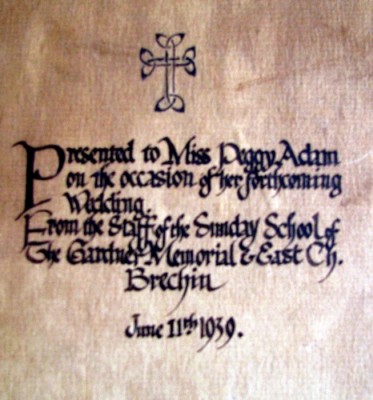 Presented to Miss Peggy Adam
on the occasion of her forthcoming
Wedding.
From the Staff of the Sunday School of
The Gardner Memorial & East Ch.
Brechin
June 11th 1939.